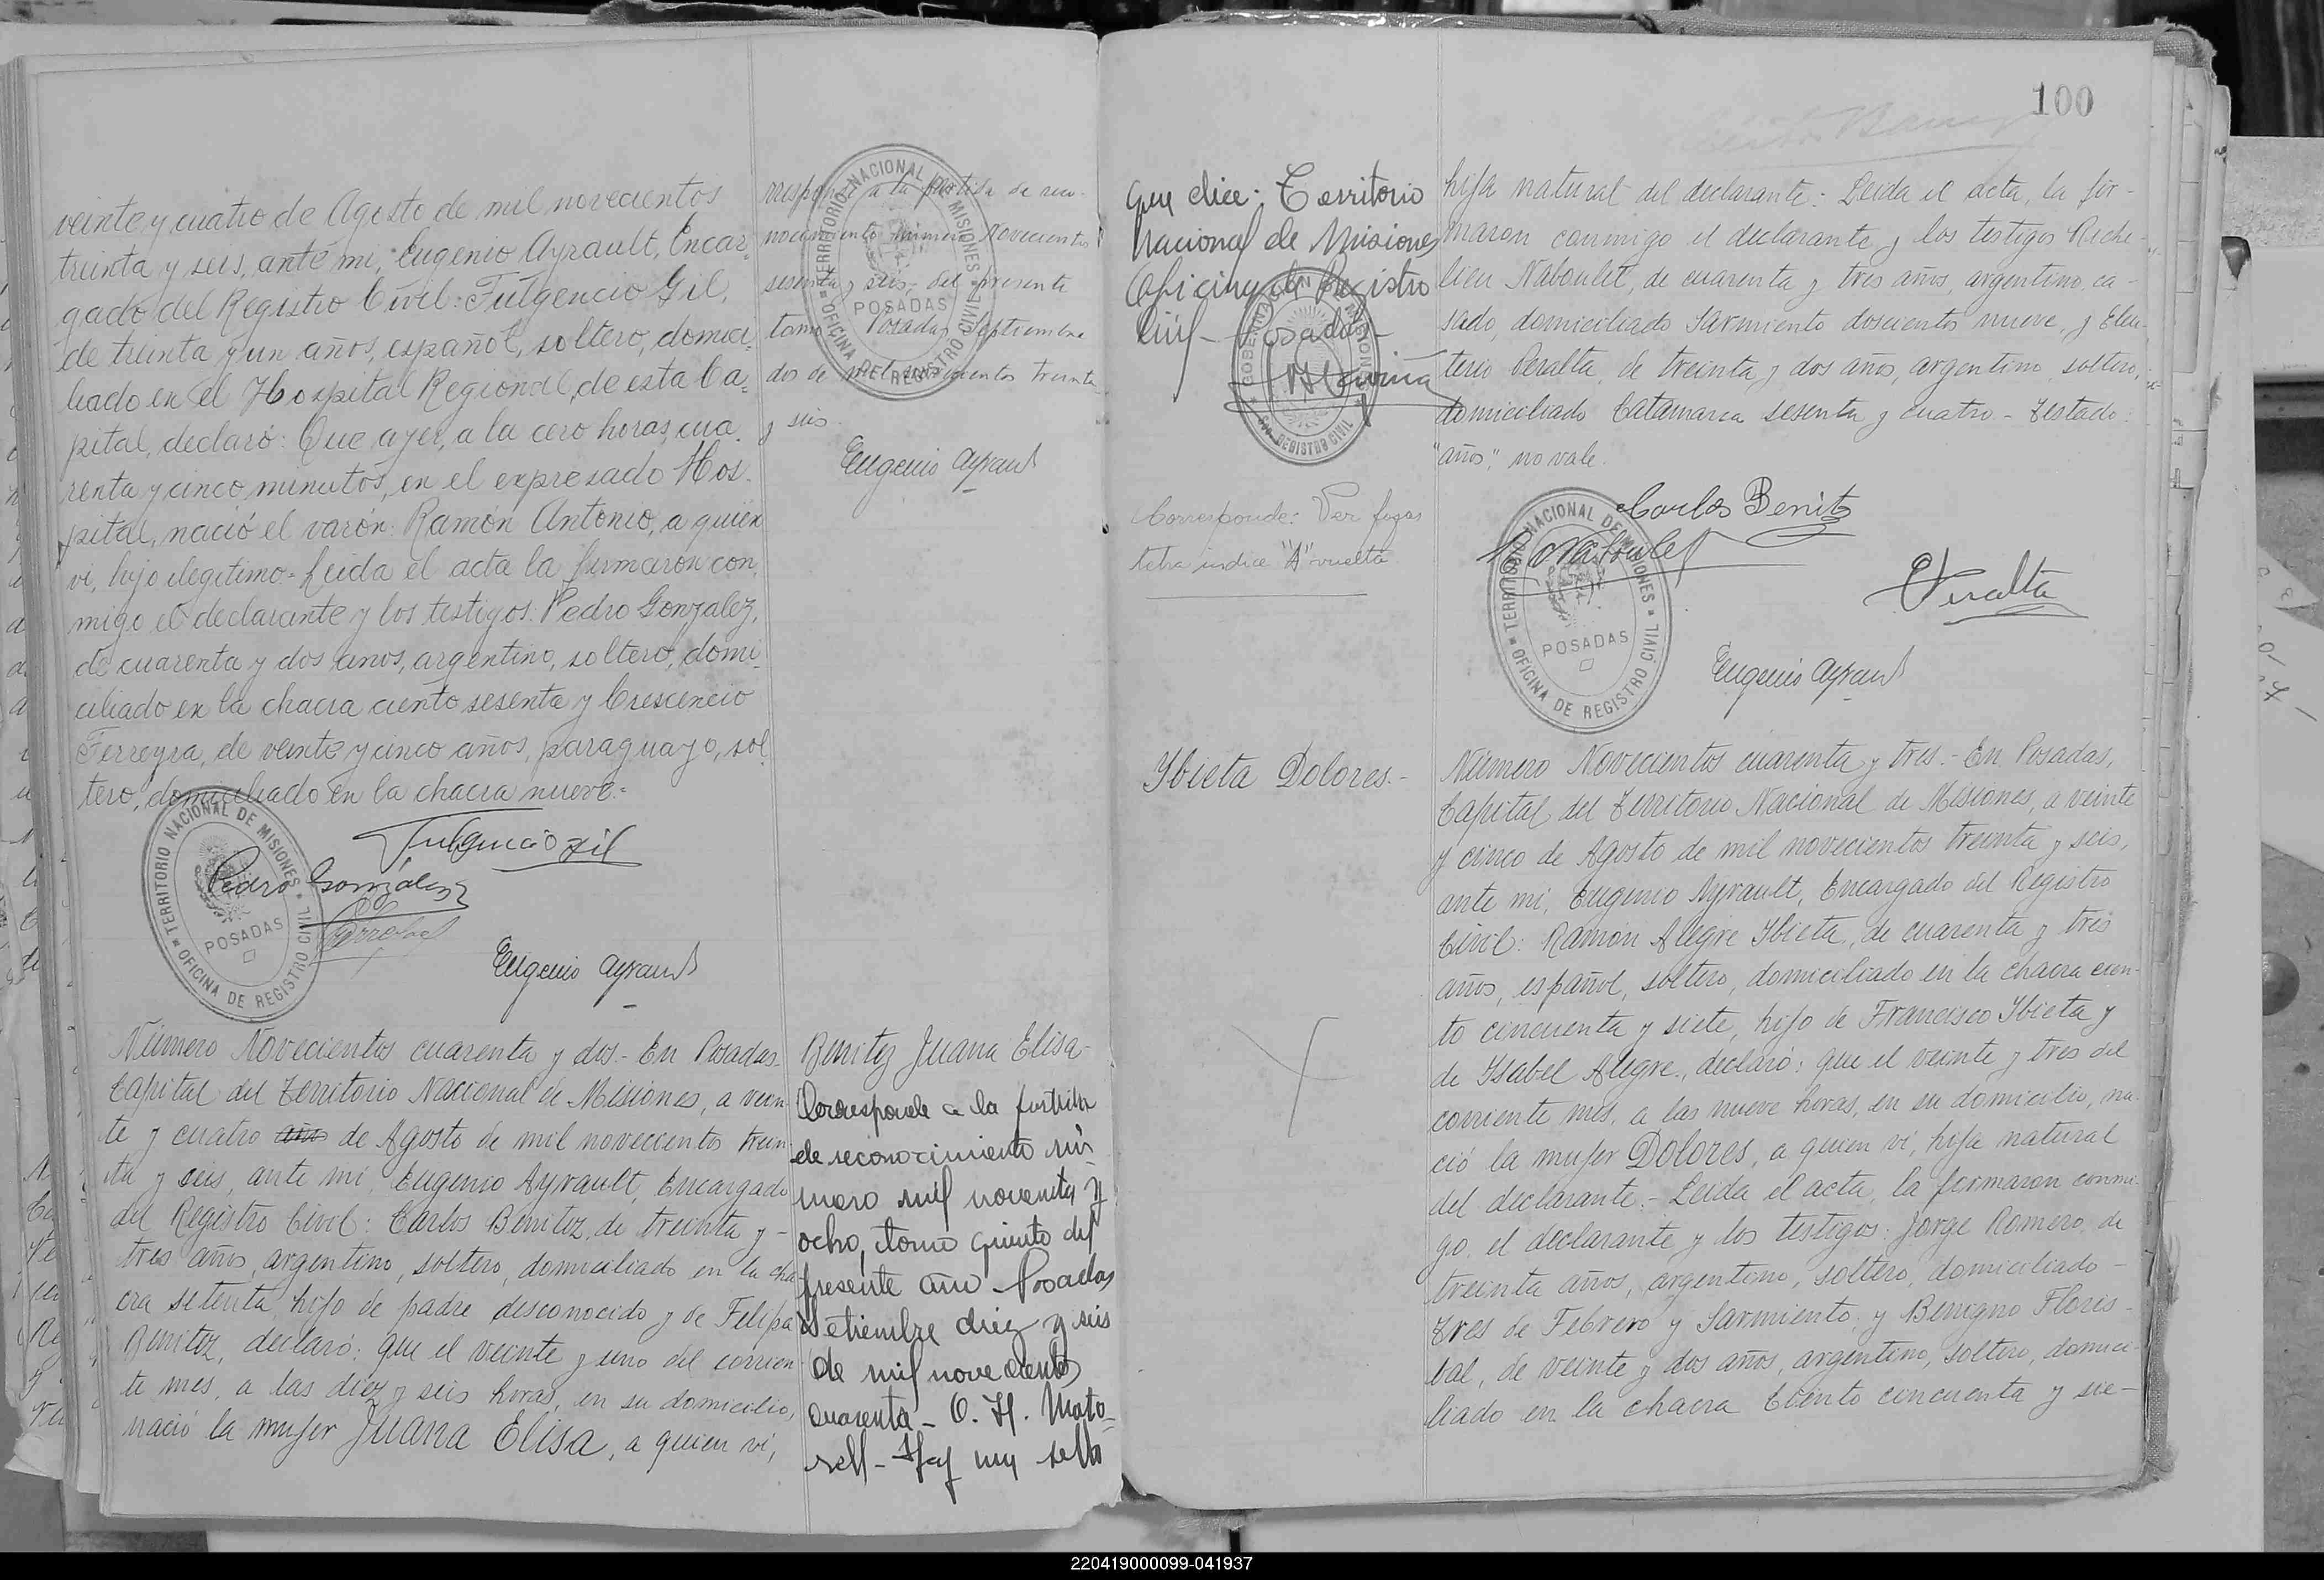 veinte y cuatro de Agosto de mil novecientos
treinta y seis, ante mi, Eugenio Ayrault, Encar-
gado del Registro Civil: Fulgencio Gil,
de treinta y un años, español, soltero, domici-
liado en el Hospital Regional, de esta Ca-
pital, declaró: Que ayer, a la cero horas, cua-
renta y cinco minutos, en el expresado Hos-
pital, nació el varón: Ramón Antonio, a quien
vi, hijo ilegitimo = Leida el acta la firmaron con-
migo el declarante y los testigos: Pedro Gonzalez,
de cuarenta y dos años, argentino, soltero, domi-
ciliado en la chacra ciento sesenta y Crescencio
Ferreyra, de veinte y cinco años, paraguayo, sol-
tero, domiciliado en la chacra nueve.=
Fulgencio Gil
Pedro González
Eugenio Ayrault
TERRITORIO NACIONAL DE MISIONES
POSADAS
OFICINA DE REGISTRO CIVIL
a la partida de reco-
nocimiento número Novecientos
sesenta y seis, del presente
tomo Posadas, Septiembre
dos de mil novecientos treinta
y seis.
Eugenio Ayrault
TERRITORIO NACIONAL DE MISIONES
POSADAS
OFICINA DE REGISTRO CIVIL
Número Novecientos cuarenta y dos.- En Posadas-
Capital del Territorio Nacional de Misiones, a vein-
te y cuatro años de Agosto de mil novecientos trein-
ta y seis, ante mi, Eugenio Ayrault, Encargado
del Registro Civil: Carlos Benitez, de treinta y -
tres años, argentino, soltero, domiciliado en la cha
cra setenta, hijo de padre desconocido y de Felipa
Benitez, declaró: que el veinte y uno del corrien-
te mes, a las diez y seis horas, en su domicilio,
nació la mujer Juana Elisa, a quien vi,
Benitez Juana Elisa-
Corresponde a la partida
de reconocimiento nú-
mero mil noventa y
ocho, tomo quinto del
presente año - Posadas
Setiembre diez y seis
de mil novecientos
cuarenta - O. H. Moto-
rell - Hay un sello
que dice: Territorio
Nacional de Misiones
Oficina de Registro
Civil - Posadas -
GOBERNACION DE MISIONES
REGISTRO CIVIL
Corresponde: Ver fojas
letra indice "A" vuelta
100
hija natural del declarante: Leida el acta, la fir-
maron conmigo el declarante y los testigos Riche-
lieu Naboulet, de cuarenta y tres años, argentino, ca-
sado, domiciliado Sarmiento doscientos nueve, y Eleu-
terio Peralta, de treinta y dos años, argentino, soltero,
domiciliado Catamarca sesenta y cuatro - Testado:
"años", no vale.
Carlos Benitz
R Naboulet
E Peralta
Eugenio Ayrault
TERRITORIO NACIONAL DE MISIONES
POSADAS
OFICINA DE REGISTRO CIVIL
Ybieta Dolores.-
Número Novecientos cuarenta y tres.- En Posadas,
Capital del Territorio Nacional de Misiones, a veinte
y cinco de Agosto de mil novecientos treinta y seis,
ante mi, Eugenio Ayrault, Encargado del Registro
Civil: Ramón Alegre Ybieta, de cuarenta y tres
años, español, soltero, domiciliado en la chacra cien-
to cincuenta y siete, hijo de Francisco Ybieta y
de Ysabel Alegre, declaró: que el veinte y tres del
corriente mes, a las nueve horas, en su domicilio, na-
ció la mujer Dolores, a quien vi, hija natural
del declarante.- Leida el acta, la firmaron conmi-
go, el declarante y los testigos: Jorge Romero, de
treinta años, argentino, soltero, domiciliado -
Tres de Febrero y Sarmiento, y Benigno Floris-
bal, de veinte y dos años, argentino, soltero, domici-
liado en la chacra Ciento cincuenta y sie-
220419000099-041937